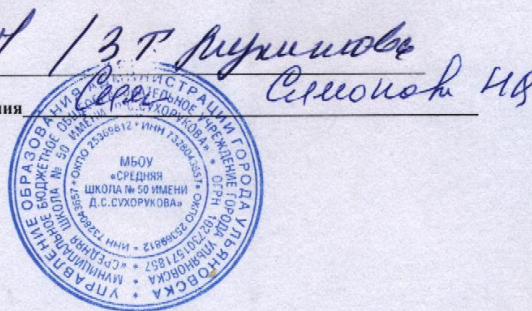 / З.Т.
ния Симонова Н
УПРАВЛЕНИЕ ОБРАЗОВАНИЯ АДМИНИСТРАЦИИ ГОРОДА УЛЬЯНОВСКА
МУНИЦИПАЛЬНОЕ БЮДЖЕТНОЕ ОБЩЕОБРАЗОВАТЕЛЬНОЕ УЧРЕЖДЕНИЕ ГОРОДА УЛЬЯНОВСКА
«СРЕДНЯЯ ШКОЛА № 50 ИМЕНИ Д.С.СУХОРУКОВА» * ОГРН 1027301571857 *
* ИНН 7328043657 * ОКПО 25369812 * ИНН 7328043657 * ОКПО 25369812
МБОУ
«СРЕДНЯЯ
ШКОЛА № 50 ИМЕНИ
Д.С.СУХОРУКОВА»